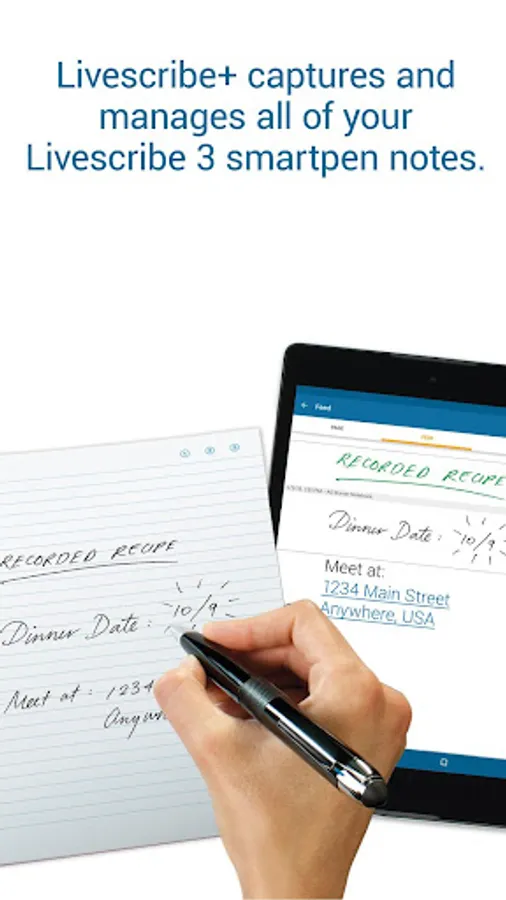 Livescribe+ captures and
manages all of your
Livescribe 3 smartpen notes.
Feed
PAGE
FEED
RECORDED RECIPE
Dinner Date: 10/9
Meet at:
1234 Main Street
Anywhere, USA
RECORDED RECIPE
Dinner Date: 10/9
Meet at: 1234
Anyw